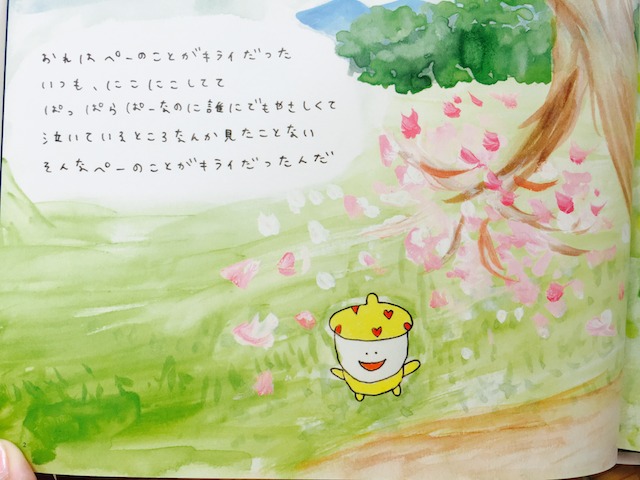 おれは ぺーのことがキライだった
いつも、にこにこしてて
ぱっぱらぱーなのに誰にでもやさしくて
泣いているところなんか見たことない
そんなぺーのことがキライだったんだ